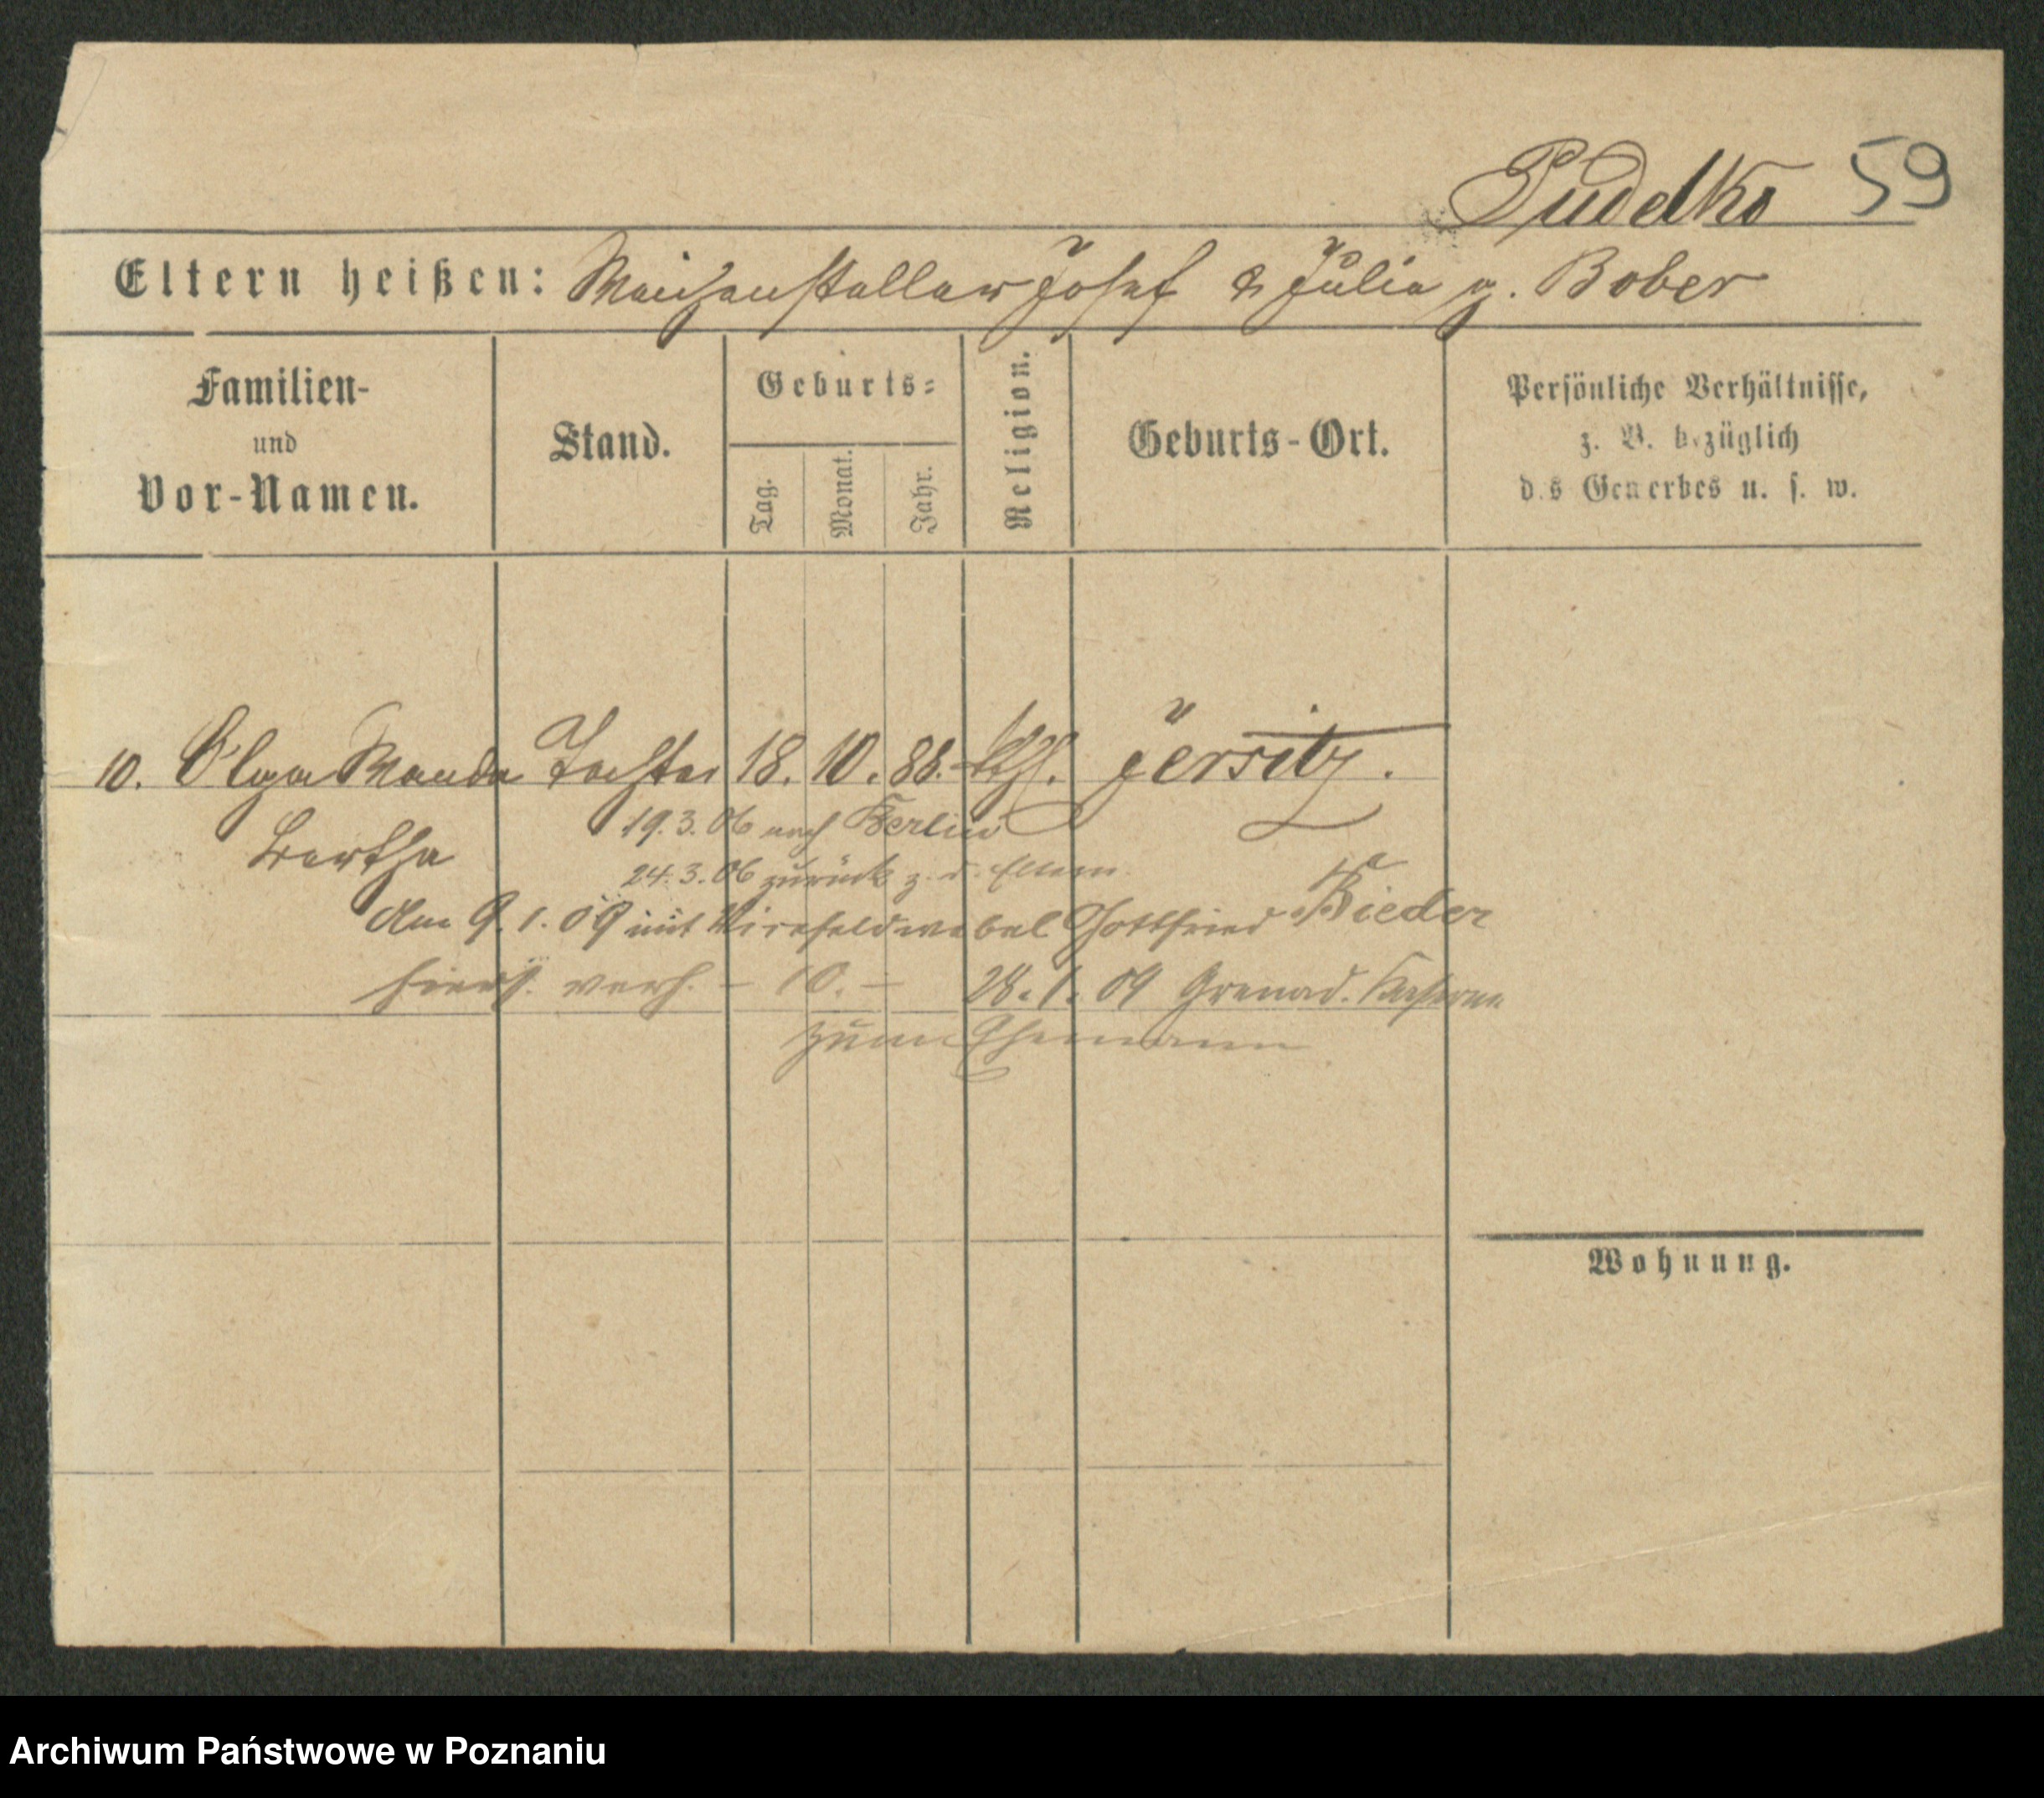 Pudelko 59
Eltern heißen: Weichensteller Josef & Julia g. Bober
Familien-
und
Vor-Namen.
Stand.
Geburts-
Tag.
Monat.
Jahr.
Religion.
Geburts-Ort.
Persönliche Verhältnisse,
z. B. bezüglich
des Gewerbes u. s. w.
10. Olga Wanda Tochter 18. 10. 88. kth. Jersitz.
Bertha
19.3.06 nach Berlin
24.3.06 zurück z. d. Eltern.
Am 9.1.09 mit Vicefeldwebel Gottfried Bieder
hiers. verh. - 10. - 28.1.09 Grenad. Kaserne
zum Ehemann
Wohnung.
Archiwum Państwowe w Poznaniu